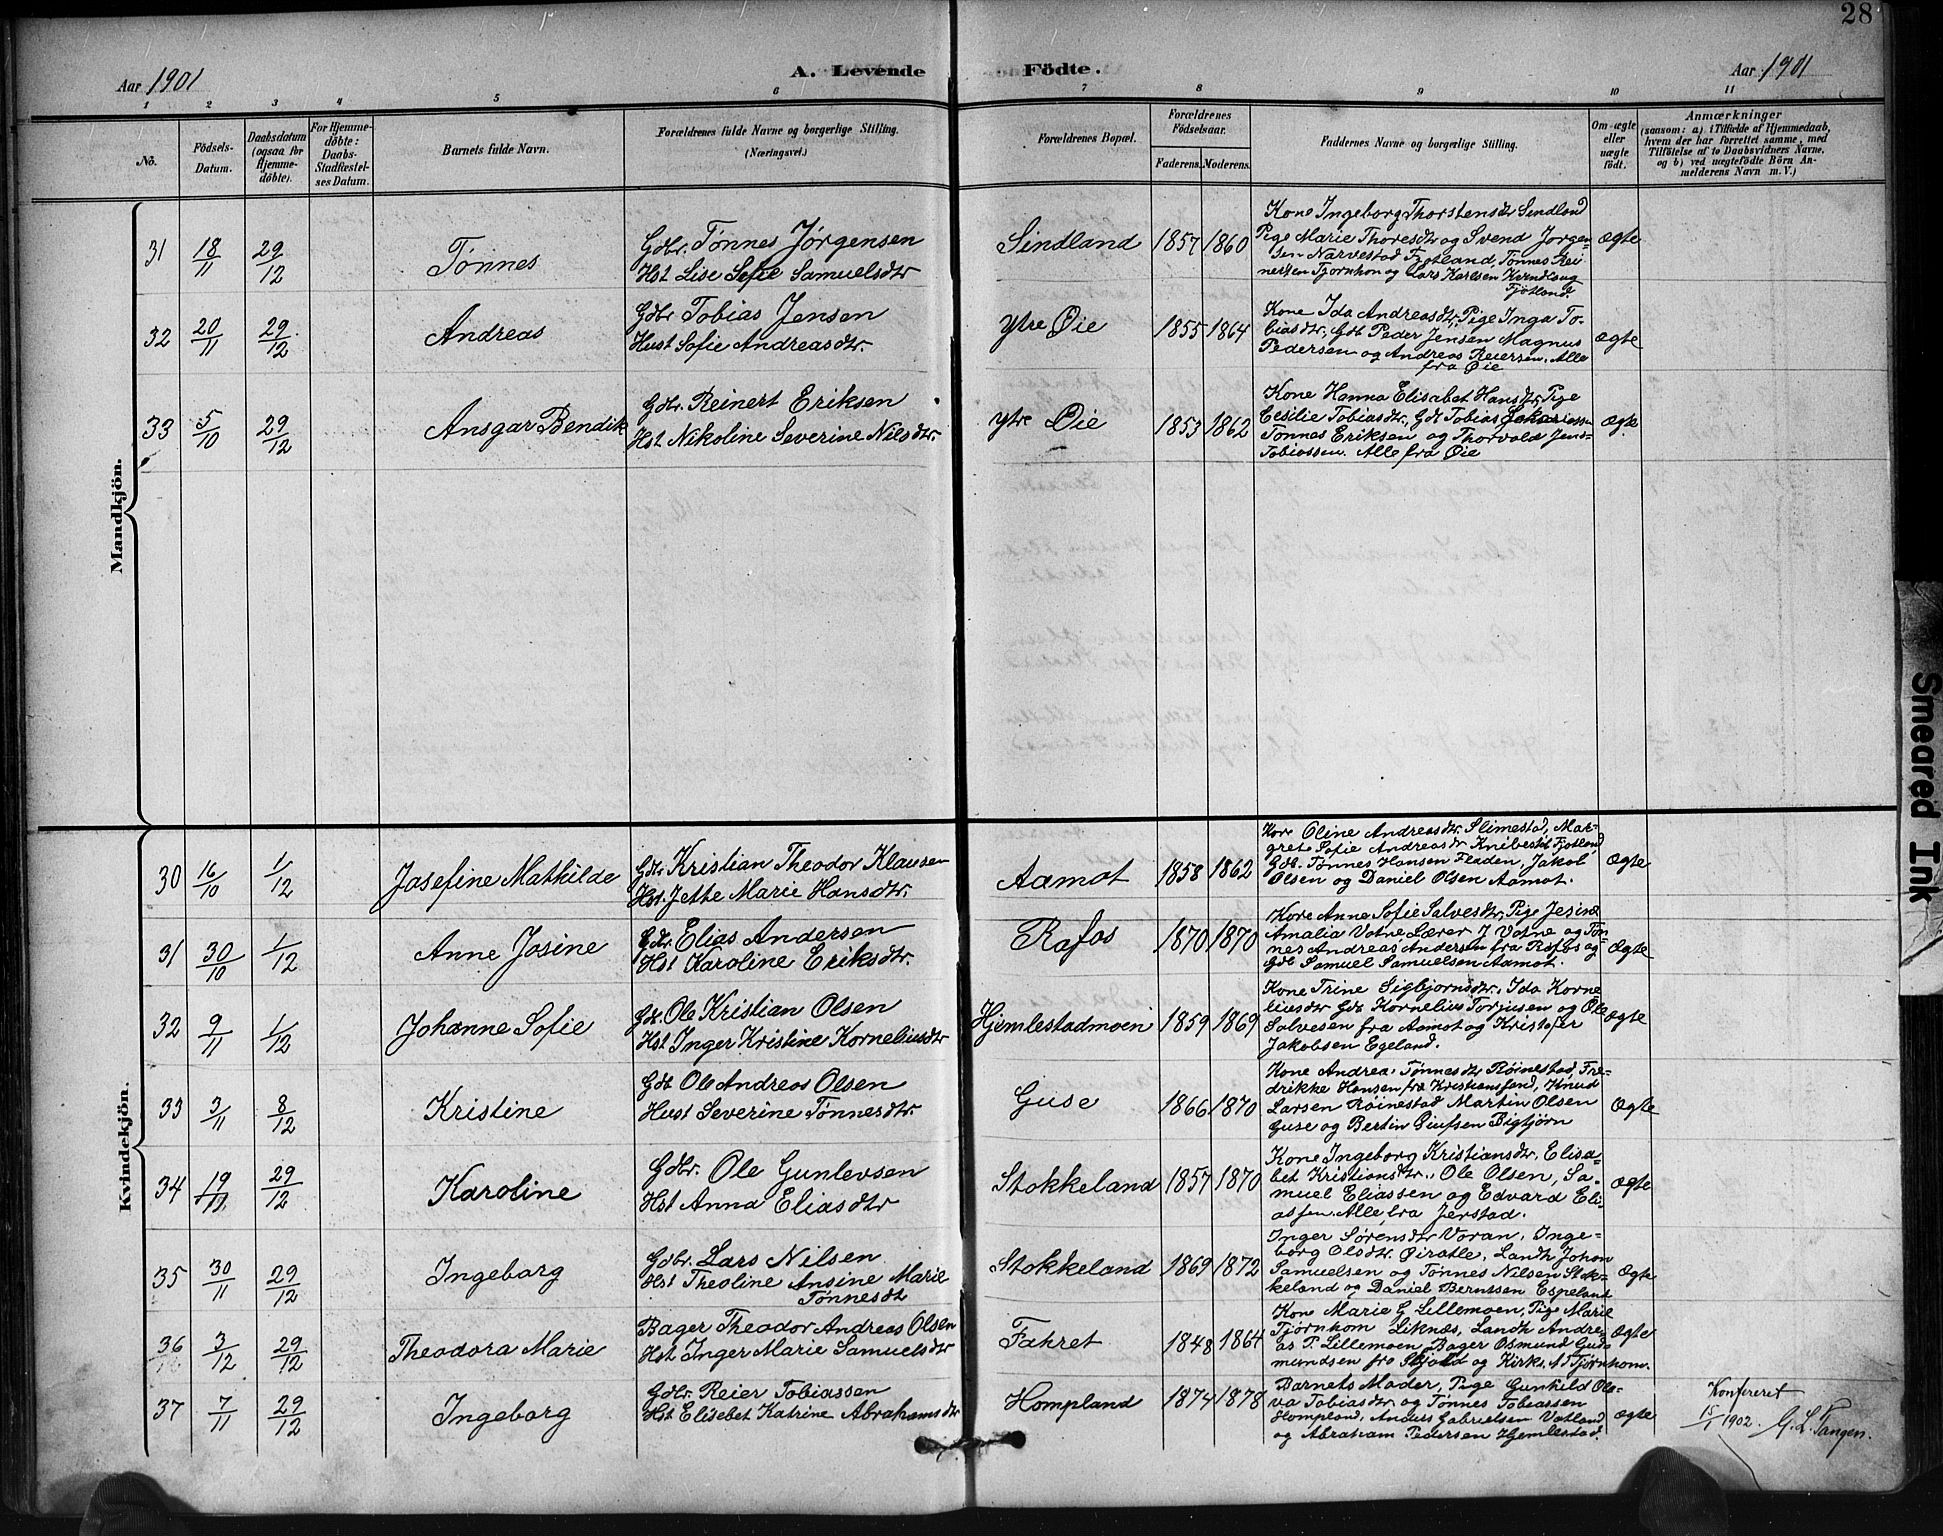 28
Aar 1901
A. Levende Födte.
Aar 1901
1 2 3 4 5 6 7 8 9 10 11
No.
Födsels-
Datum.
Daabsdatum
(ogsaa for
Hjemme-
döbte).
For Hjemme-
döbte:
Daabs-
Stadfæstel-
ses Datum.
Barnets fulde Navn.
Forældrenes fulde Navne og borgerlige Stilling.
(Næringsvei.)
Forældrenes Bopæl.
Forældrenes
Födselsaar.
Faderens. Moderens.
Faddernes Navne og borgerlige Stilling.
Om ægte
eller
uægte
født.
Anmærkninger
(saasom: a) i Tilfælde af Hjemmedaab,
hvem der har forrettet samme, med
Tilföielse af to Daabsvidners Navne,
og b) ved uægtefödte Börn An-
melderens Navn m. V.)
Mandkjön.
31 18/11 29/12 Tønnes
Gdbr. Tønnes Jørgensen
Hst Lise Sofie Samuelsdtr
Sindland 1857 1860
Kone Ingeborg Thorstensdtr Sindland
Pige Marie Thoresdtr og Svend Jørgen-
sen Narvestad Fjotland, Tønnes Rei
nertsen Tjørnhom og Lars Karlsen
Fjotland.
Ægte
32 20/11 29/12 Andreas
Gdbr Tobias Jensen
Hust Sofie Andreasdtr.
Ytre Øie 1855 1864
Kone Ida Andreasdtr, Pige Inga To-
biasdtr, Gdb Peder Jensen Magnus
Pedersen og Andreas Reiersen. Alle
fra Øie
Ægte
33 5/10 29/12 Ansgar Bendik
Gdbr. Reinert Eriksen
Hst Nikoline Severine Nilsdtr.
Ytre Øie 1853 1862
Kone Hanna Elisabet Hansdtr, Pige
Cesilie Tobiasdtr., Gdb Tobias
Tønnes Eriksen og Thorvald Jens
Tobiassen. Alle fra Øie
Ægte
Kvindekjön.
30 16/10 1/12 Josefine Mathilde
Gdbr Kristian Theodor Klausen
Hst. Jette Marie Hansdtr.
Aamot 1858 1862
Kone Oline Andreasdtr. Slimestad, Mar-
grete Sofie Andreasdtr Fjotland
Gdb. Tønnes Hansen Fladen, Jakob
Olsen og Daniel Olsen Aamot.
Ægte
31 30/10 1/12 Anne Josine
Gdbr. Elias Andersen
Hst Karoline Eriksdtr.
Rafos 1870 1870
Kone Anne Sofie Salvesdtr, Pige Jesine
Amalia Votne Lærer J Votne og Tøn-
nes Andreas Andersen fra Rafos og
Gdb Samuel Samuelsen Aamot.
Ægte
32 9/11 1/12 Johanne Sofie
Gdb. Ole Kristian Olsen
Hst Inger Kristine Korneliusdtr
Hjemlestadmoen 1859 1869
Kone Trine Sigbjørnsdtr. Ida Korne
liusdtr Gdb Kornelius Torjusen og Ole
Salvesen fra Aamot og Kristofer
Jakobsen Egeland.
Ægte
33 3/11 8/12 Kristine
Gdb Ole Andreas Olsen
Hust Severine Tønnesdtr
Guse 1866 1870
Kone Andrea Tønnesdtr Røinestad, Fre-
drikke Hansen fra Kristiansand, Knud
Larsen Røinestad Martin Olsen
Guse og Bertin
Ægte
34 19/11 29/12 Karoline
Gdbr. Ole Gunlevsen
Hst Anna Eliasdtr
Stokkeland 1857 1870
Kone Ingeborg Kristiansdtr, Elisa-
bet Kristiansdtr., Ole Olsen, Sa-
muel Eliassen og Edvard Eli-
assen. Alle fra Jerstad.
Ægte
35 30/11 29/12 Ingeborg
Gdbr. Lars Nilsen
Hst Theoline Ansine Marie
Tønnesdt
Stokkeland 1869 1872
Inger Sørensdtr Voran, Inge-
borg Olsdtr. Landh Johan
Samuelsen og Tønnes Nilsen Stok-
keland og Daniel Berntsen Espeland
Ægte
36 3/12 29/12 Theodora Marie
Bager Theodor Andreas Olsen
Hst Inger Marie Samuelsdtr
Fakret 1848 1864
Kone Marie G Lillemoen, Pige Marie
Tjørnhom Liknæs, Landh Andre-
as T. Lillemoen Bager Osmund Gud
mundsen fra og Kirks. Tjørnhom.
Ægte
37 7/11 29/12 Ingeborg
Gdbr. Reier Tobiassen
Hst Elisebet Katrine Abrahamsdtr
Hompland 1874 1878
Barnets Moder, Pige Gunhild Ols-
va Tobiasdtr og Tønnes Tobiassen
Hompland, Anders Gabrielsen Vatland
og Abraham Pedersen Hjemlestad.
Ægte
Konfereret
15/1 1902. G. L. Tangen.
Smeared Ink